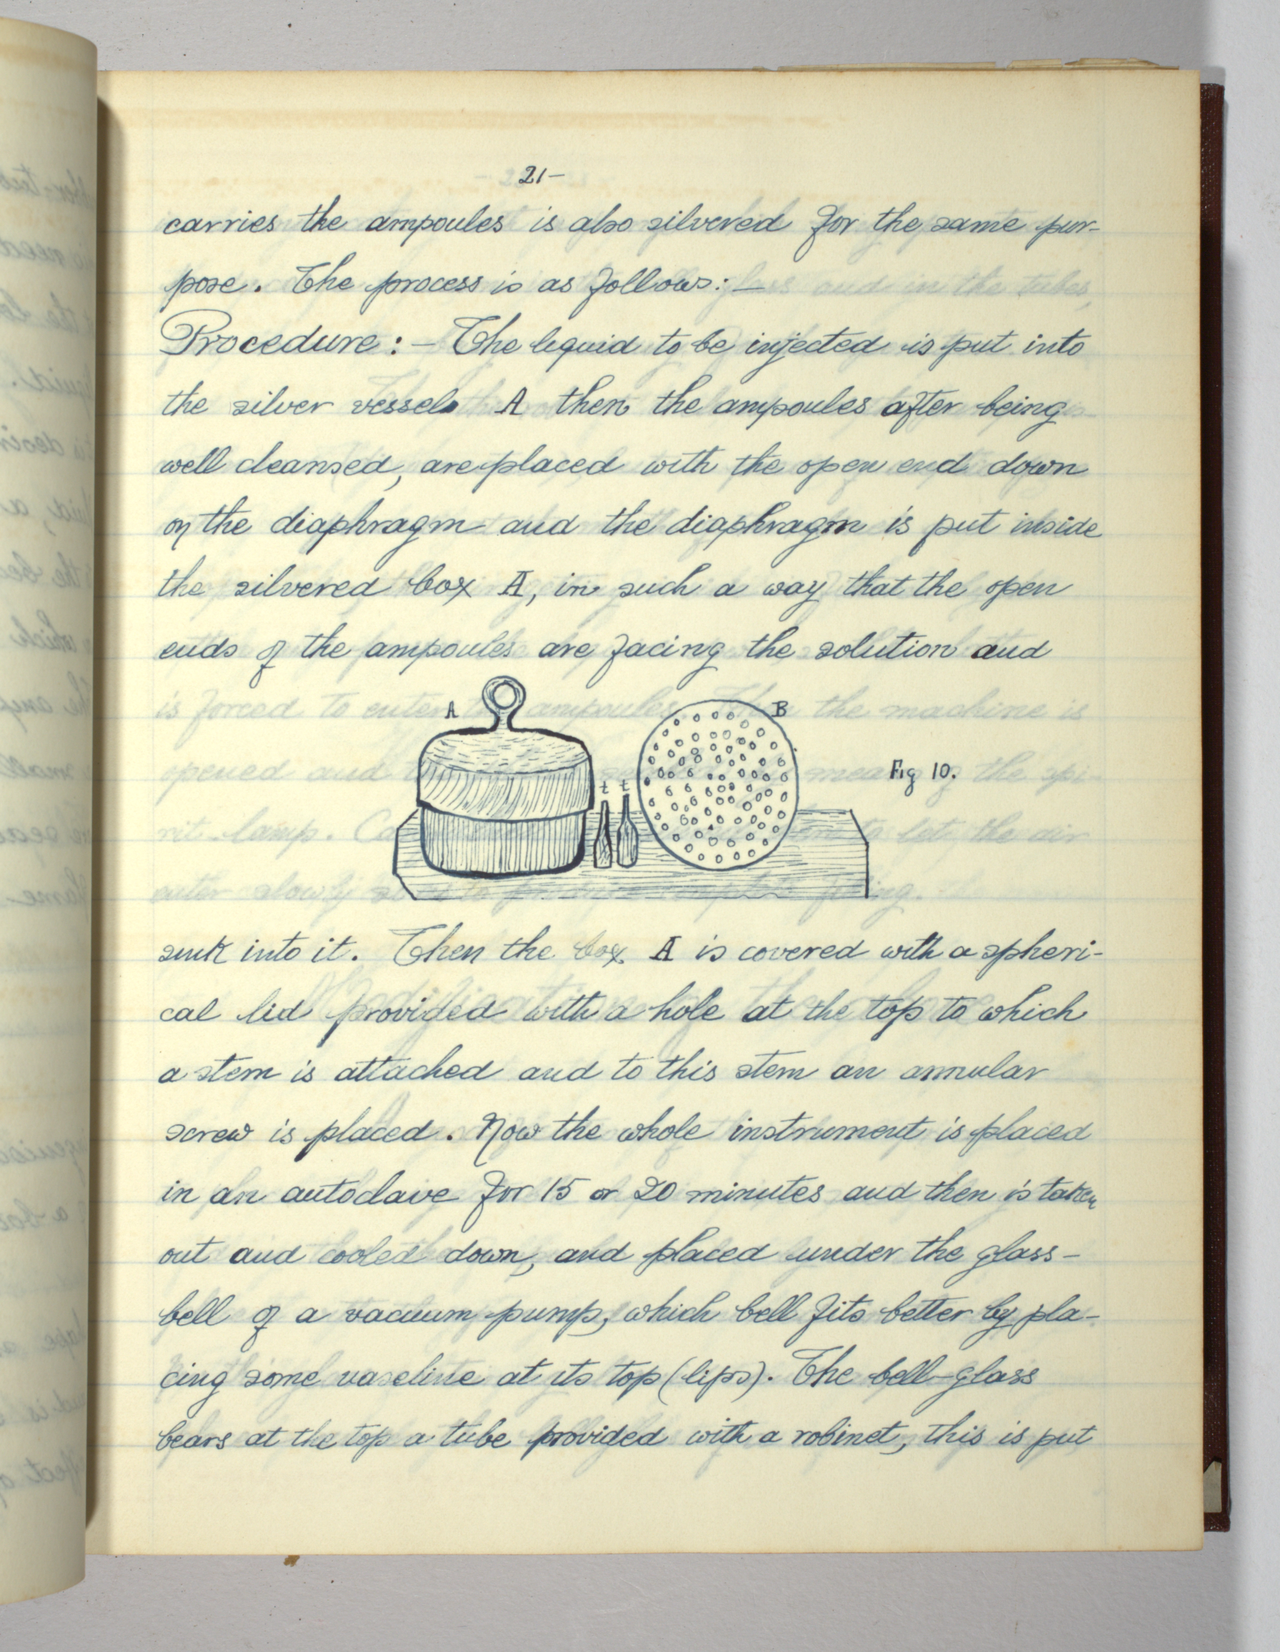 21-
carries the ampoules is also silvered for the same pur-
pose. The process is as follows: —
Procedure: — The liquid to be injected is put into
the silver vessel A then the ampoules after being
well cleansed, are placed with the open end down
on the diaphragm and the diaphragm is put inside
the silvered box A, in such a way that the open
ends of the ampoules are facing the solution and
A
B
t t
Fig 10.
sunk into it. Then the box A is covered with a spheri-
cal lid provided with a hole at the top to which
a stem is attached and to this stem an annular
screw is placed. Now the whole instrument is placed
in an autoclave for 15 or 20 minutes and then is taken
out and cooled down, and placed under the glass-
bell of a vacuum pump, which bell fits better by pla-
cing some vaseline at its top (lips). The bell-glass
bears at the top a tube provided with a robinet, this is put